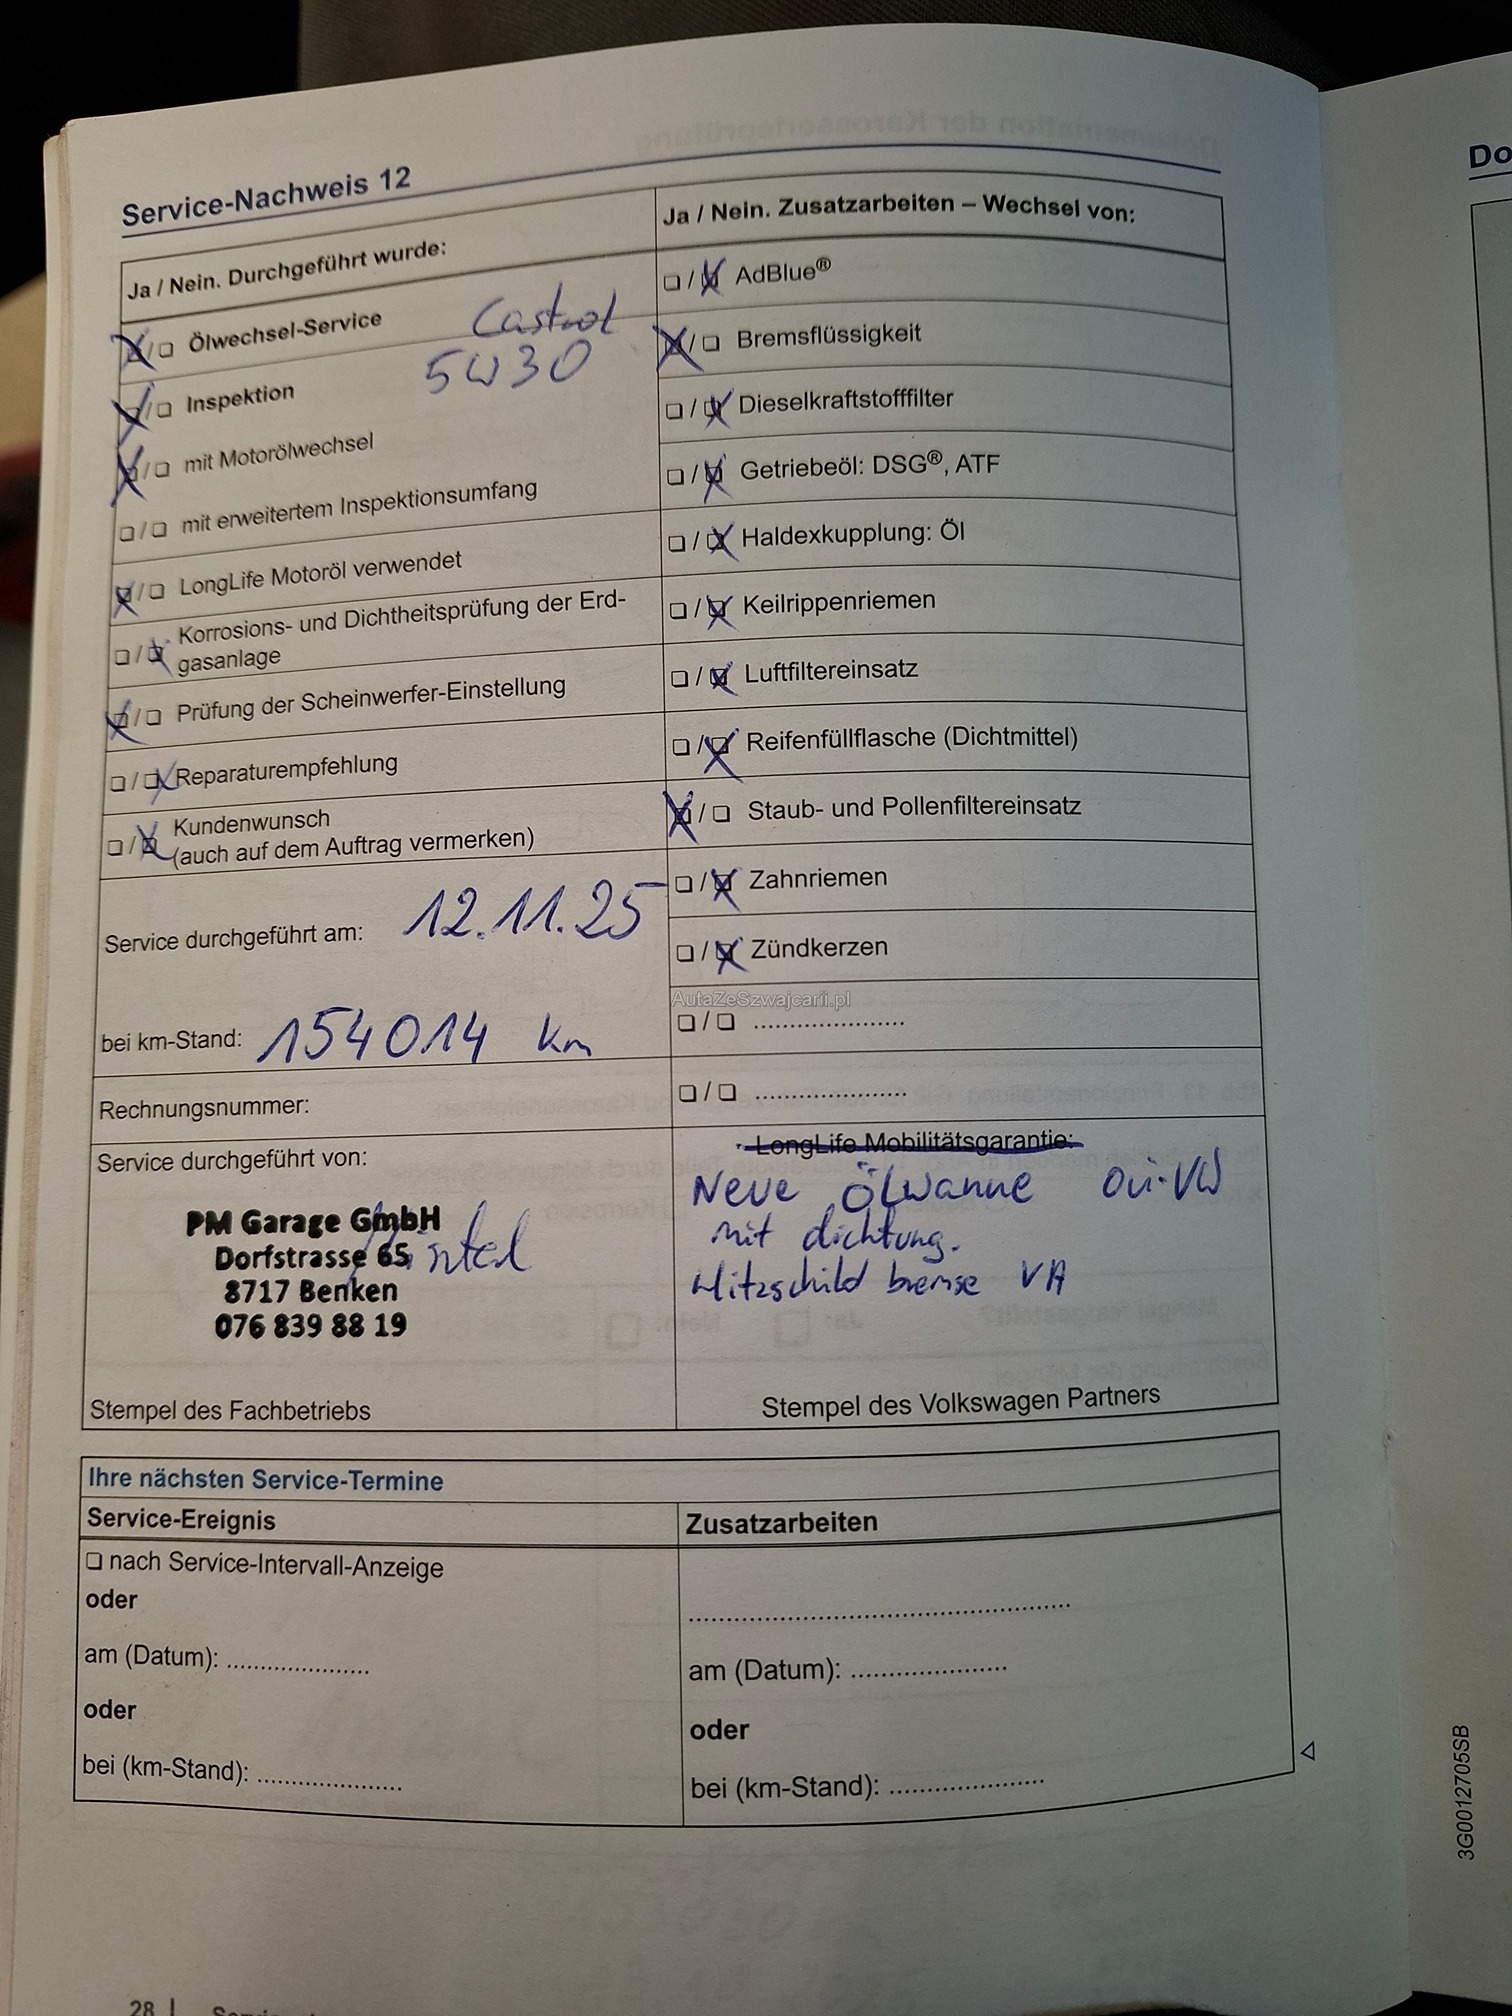 Service-Nachweis 12
Ja / Nein. Durchgeführt wurde:
❏ / ❏ Ölwechsel-Service Castrol
5W30
❏ / ❏ Inspektion
❏ / ❏ mit Motorölwechsel
❏ / ❏ mit erweitertem Inspektionsumfang
❏ / ❏ LongLife Motoröl verwendet
❏ / ❏ Korrosions- und Dichtheitsprüfung der Erd-
gasanlage
❏ / ❏ Prüfung der Scheinwerfer-Einstellung
❏ / ❏ Reparaturempfehlung
❏ / ❏ Kundenwunsch
(auch auf dem Auftrag vermerken)
Service durchgeführt am: 12.11.25
bei km-Stand: 154014 km
Rechnungsnummer:
Service durchgeführt von:
PM Garage GmbH
Dorfstrasse 65
8717 Benken
076 839 88 19
Stempel des Fachbetriebs
Ja / Nein. Zusatzarbeiten – Wechsel von:
❏ / ❏ AdBlue®
❏ / ❏ Bremsflüssigkeit
❏ / ❏ Dieselkraftstofffilter
❏ / ❏ Getriebeöl: DSG®, ATF
❏ / ❏ Haldexkupplung: Öl
❏ / ❏ Keilrippenriemen
❏ / ❏ Luftfiltereinsatz
❏ / ❏ Reifenfüllflasche (Dichtmittel)
❏ / ❏ Staub- und Pollenfiltereinsatz
❏ / ❏ Zahnriemen
❏ / ❏ Zündkerzen
AutaZeSzwajcarii.pl
❏ / ❏ ......................
❏ / ❏ ......................
LongLife Mobilitätsgarantie:
Neue Ölwanne Ori-VW
mit dichtung.
Hitzschild bremse VA
Stempel des Volkswagen Partners
Ihre nächsten Service-Termine
Service-Ereignis
❏ nach Service-Intervall-Anzeige
oder
am (Datum): ......................
oder
bei (km-Stand): ......................
Zusatzarbeiten
..........................................................
am (Datum): ........................
oder
bei (km-Stand): ........................
Do
3G0012705SB
28